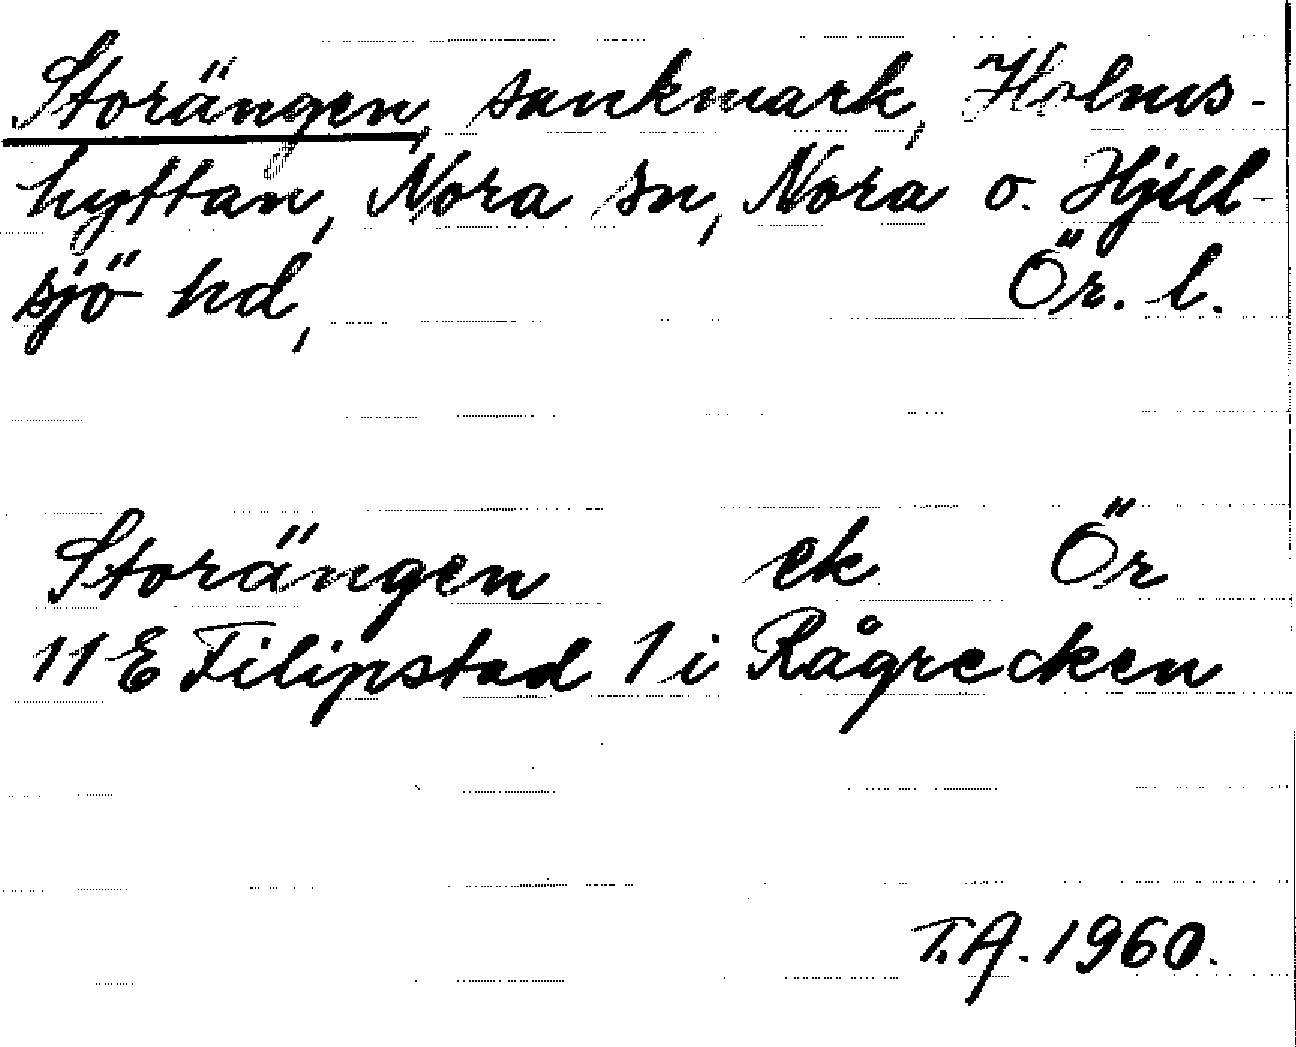 Storängen, sankmark, Holms-
hyttan, Nora sn, Nora o. Hjull-
sjö hd, Ör. l.
Storängen ek Ör
11E Filipstad 1i Rågrecken
T.A. 1960.